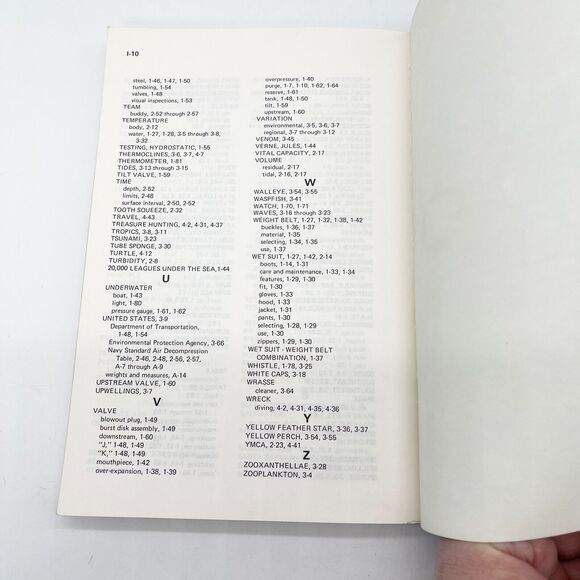 I-10
steel, 1-46, 1-47, 1-50
tumbling, 1-54
valves, 1-48
visual inspections, 1-53
TEAM
buddy, 2-52 through 2-57
TEMPERATURE
body, 2-12
water, 1-27, 1-28, 3-5 through 3-8,
3-32
TESTING, HYDROSTATIC, 1-55
THERMOCLINES, 3-6, 3-7, 4-7
THERMOMETER, 1-81
TIDES, 3-13 through 3-15
TILT VALVE, 1-59
TIME
depth, 2-52
limits, 2-48
surface interval, 2-50, 2-52
TOOTH SQUEEZE, 2-32
TRAVEL, 4-43
TREASURE HUNTING, 4-2, 4-31, 4-37
TROPICS, 3-8, 3-11
TSUNAMI, 3-23
TUBE SPONGE, 3-30
TURTLE, 4-12
TURBIDITY, 2-8
20,000 LEAGUES UNDER THE SEA,1-44
U
UNDERWATER
boat, 1-43
light, 1-80
pressure gauge, 1-61, 1-62
UNITED STATES, 3-9
Department of Transportation,
1-48, 1-54
Environmental Protection Agency, 3-66
Navy Standard Air Decompression
Table, 2-46, 2-48, 2-56, 2-57,
A-7 through A-9
weights and measures, A-14
UPSTREAM VALVE, 1-60
UPWELLINGS, 3-7
V
VALVE
blowout plug, 1-49
burst disk assembly, 1-49
downstream, 1-60
"J," 1-48, 1-49
"K," 1-48, 1-49
mouthpiece, 1-42
over-expansion, 1-38, 1-39
overpressure, 1-40
purge, 1-7, 1-10, 1-62, 1-64
reserve, 1-61
tank, 1-48, 1-50
tilt, 1-59
upstream, 1-60
VARIATION
environmental, 3-5, 3-6, 3-7
regional, 3-7 through 3-12
VENOM, 3-45
VERNE, JULES, 1-44
VITAL CAPACITY, 2-17
VOLUME
residual, 2-17
tidal, 2-16, 2-17
W
WALLEYE, 3-54, 3-55
WASPFISH, 3-41
WATCH, 1-70, 1-71
WAVES, 3-16 through 3-23
WEIGHT BELT, 1-27, 1-32, 1-38, 1-42
buckles, 1-36, 1-37
material, 1-35
selecting, 1-34, 1-35
use, 1-37
WET SUIT, 1-27, 1-42, 2-14
boots, 1-14, 1-31
care and maintenance, 1-33, 1-34
features, 1-29, 1-30
fit, 1-30
gloves, 1-33
hood, 1-33
jacket, 1-31
pants, 1-30
selecting, 1-28, 1-29
use, 1-30
zippers, 1-29, 1-30
WET SUIT - WEIGHT BELT
COMBINATION, 1-37
WHISTLE, 1-78, 3-25
WHITE CAPS, 3-18
WRASSE
cleaner, 3-64
WRECK
diving, 4-2, 4-31, 4-35, 4-36
Y
YELLOW FEATHER STAR, 3-36, 3-37
YELLOW PERCH, 3-54, 3-55
YMCA, 2-23, 4-41
Z
ZOOXANTHELLAE, 3-28
ZOOPLANKTON, 3-4